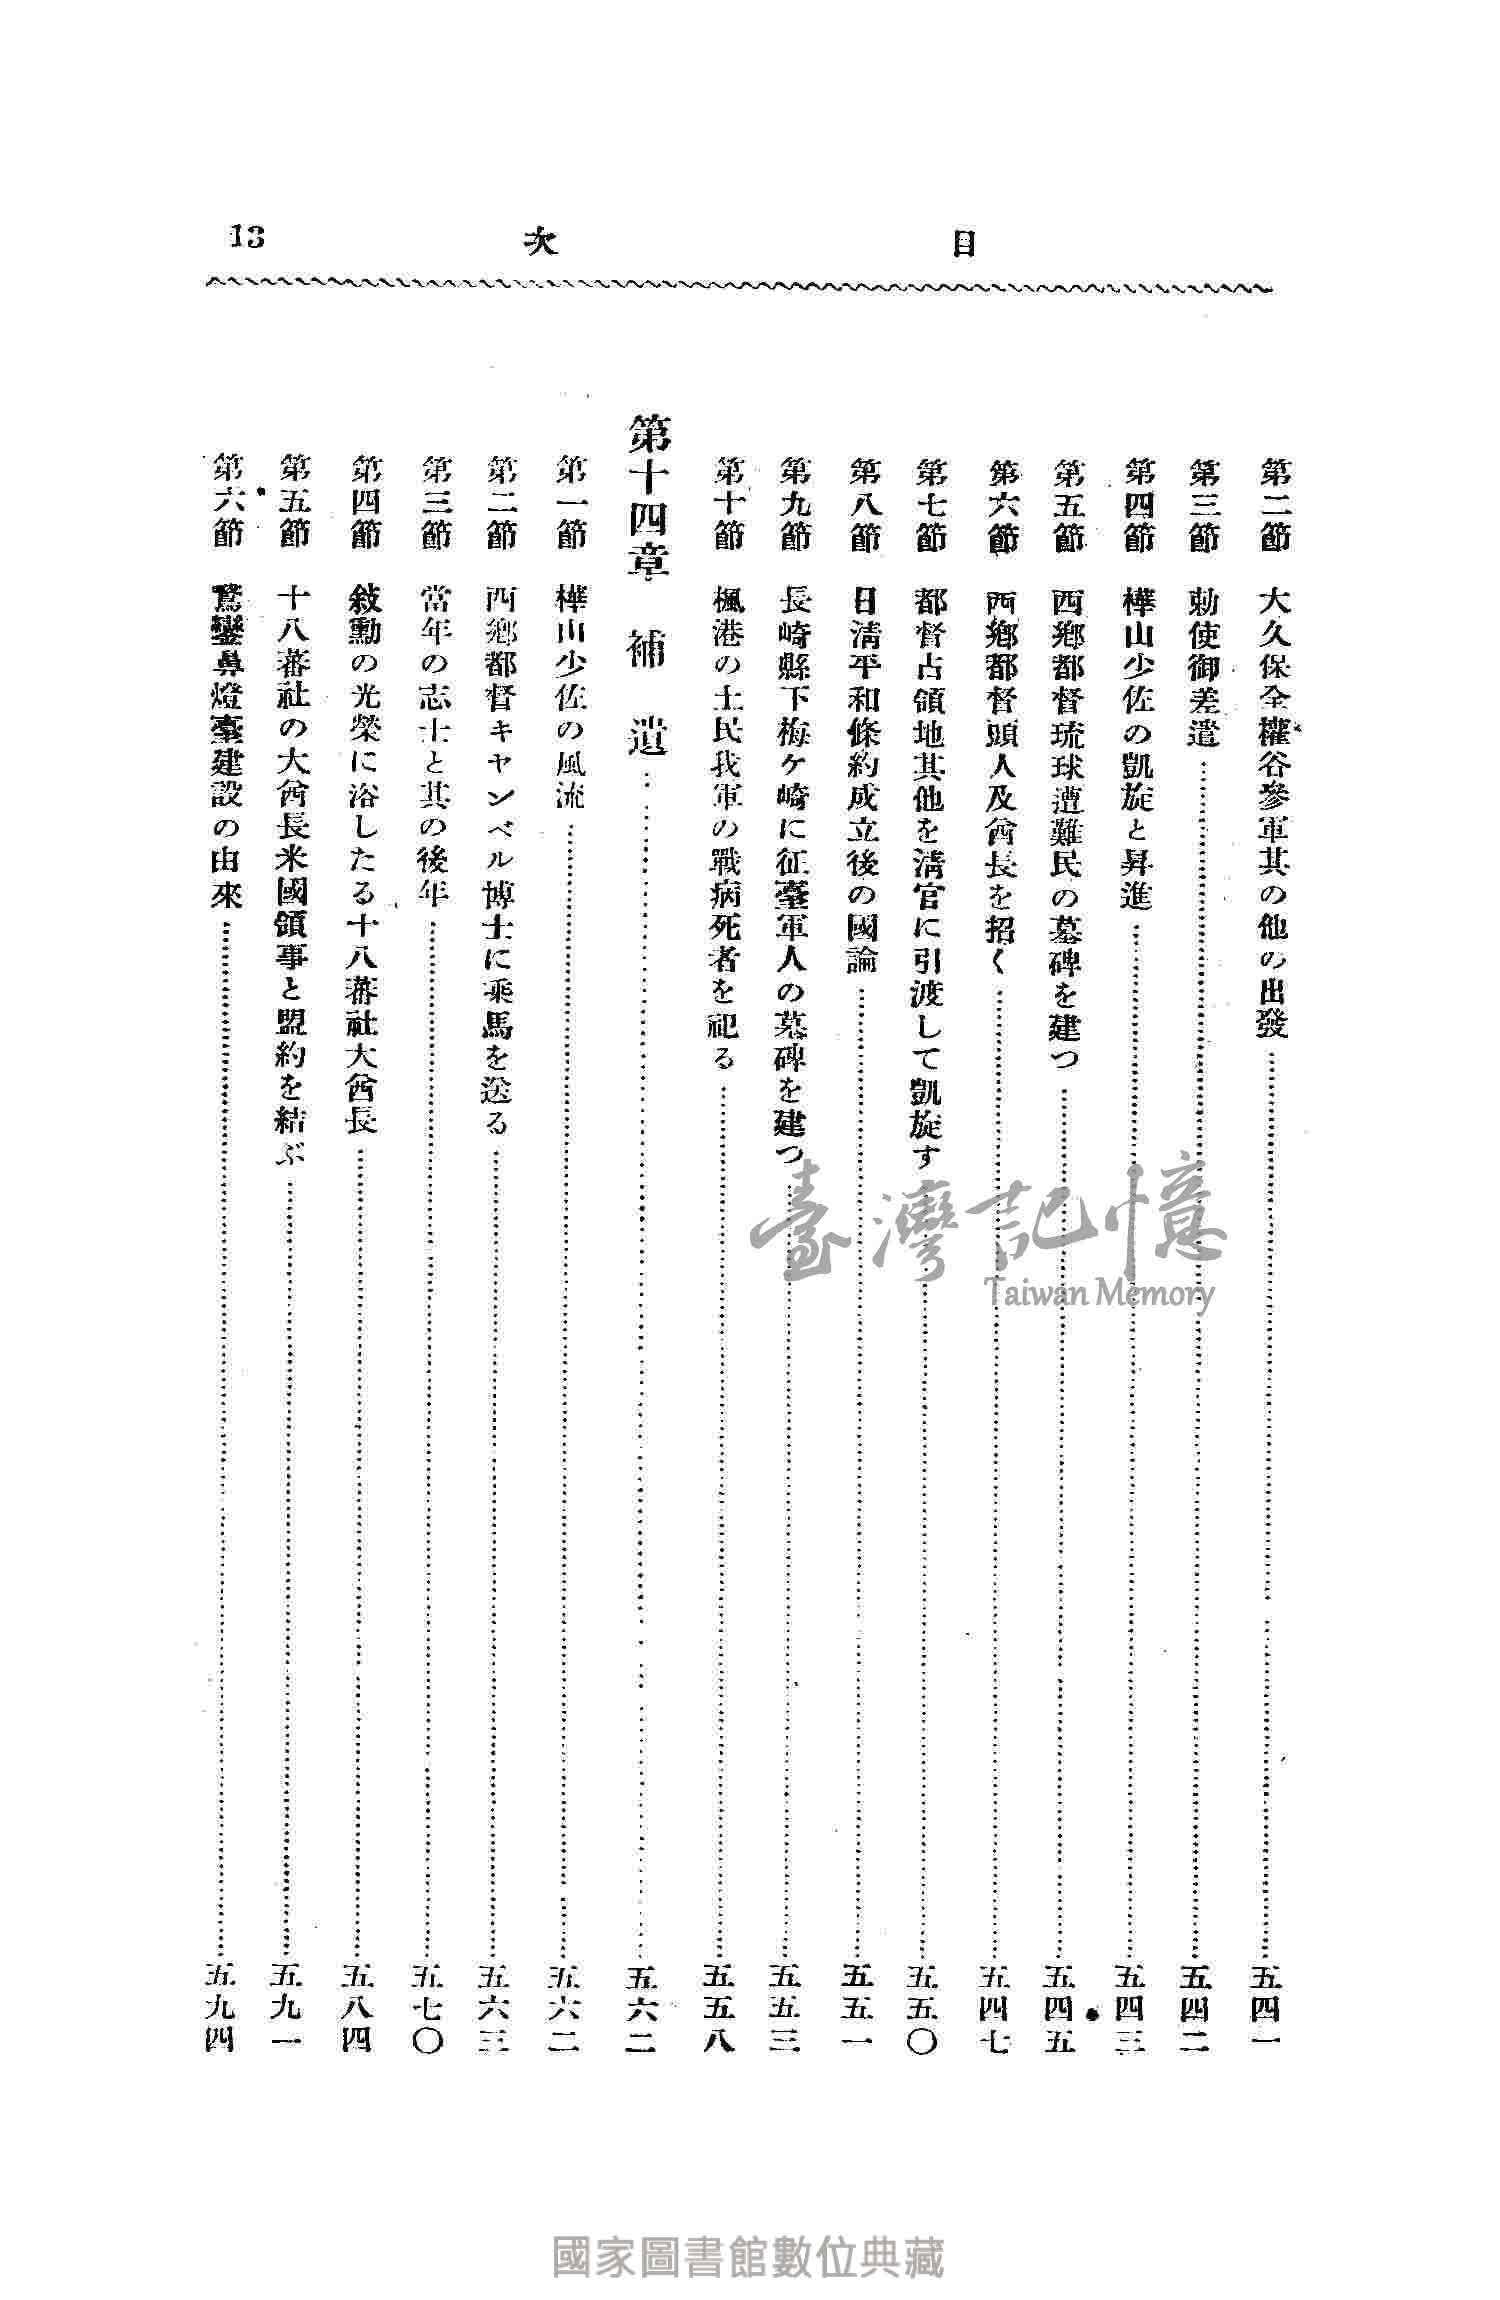 目次 13
第二節 大久保全權谷參軍其の他の出發 五四一
第三節 勅使御差遣 五四二
第四節 樺山少佐の凱旋と昇進 五四三
第五節 西鄕都督琉球遭難民の墓碑を建つ 五四五
第六節 西鄕都督頭人及酋長を招く 五四七
第七節 都督占領地其他を淸官に引渡して凱旋す 五五〇
第八節 日淸平和條約成立後の國論 五五一
第九節 長崎縣下梅ケ崎に征臺軍人の墓碑を建つ 五五三
第十節 楓港の土民我軍の戰病死者を祀る 五五八
第十四章 補遺 五六二
第一節 樺山少佐の風流 五六二
第二節 西鄕都督キャンベル博士に乘馬を送る 五六三
第三節 當年の志士と其の後年 五七〇
第四節 敍勳の光榮に浴したる十八蕃社大酋長 五八四
第五節 十八蕃社の大酋長米國領事と盟約を結ぶ 五九一
第六節 鵞鑾鼻燈臺建設の由來 五九四
臺灣記憶
Taiwan Memory
國家圖書館數位典藏